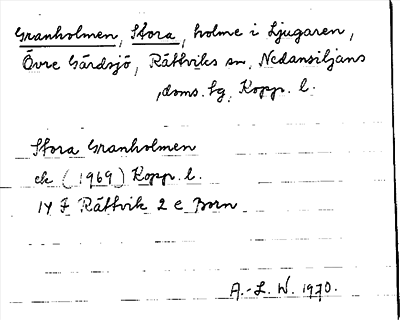 Granholmen, Stora, holme i Ljugaren,
Övre Gärdsjö, Rättviks sn, Nedansiljans
,doms. tg, Kopp. l.
Stora Granholmen
ek (1969) Kopp. l.
14 F Rättvik 2 c Born
A.-L. W. 1970.